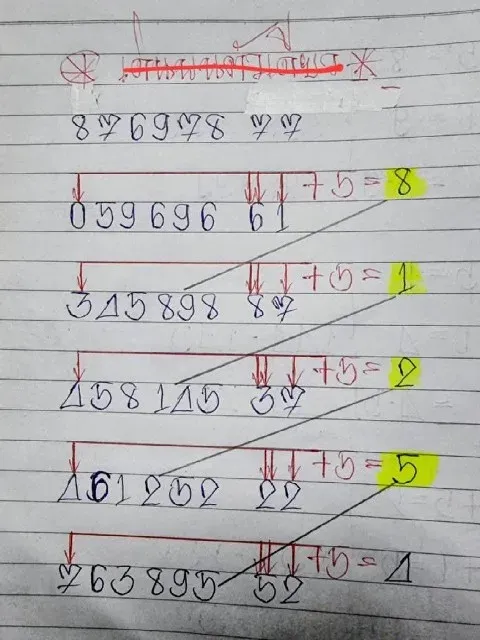 876978 77
+5=8
059696 61
+5=1
345898 87
+5=2
158145 37
+5=5
161252 22
+5=1
763895 52